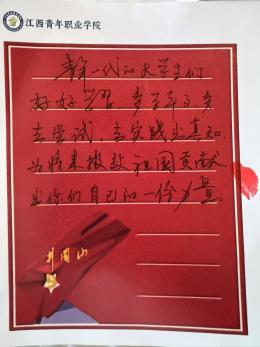 江西青年职业学院
新一代的大学生们
好好学习,多多去
去尝试,去实践出真知
为将来报效祖国贡献
出你们自己的一份力量
井冈山